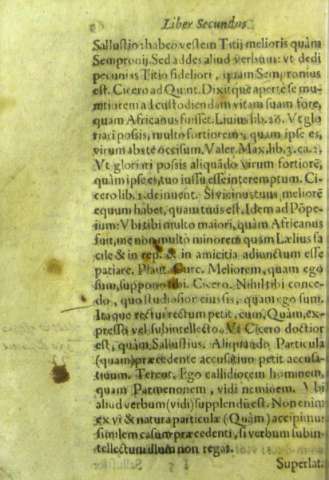 Liber Secundus
Sallustio: habeo vestem Titij melioris quàm
Sempronij. Sed addes aliud verbum: vt dedi
pecunias Titio fideliori, quàm Sempronius
est. Cicero ad Quint. Dixitque aperte se mu-
ad custodiendam vitam suam fore,
quam Africanus fuisset. Liuius lib. 28. Vt glo
riari possis, multo fortiorem, quàm ipse es,
virum abs te occisum. Valer. Max. lib. 3. ca. 2.
Vt gloriari possis aliquãdo virum fortiorẽ,
quàm ipse es, tuo iussu esse interemptum. Ci-
cero lib. 1. de inuent. Si vicinus tuus meliorẽ
equum habet, quam tuus est. Idem ad Põpe-
ium: Vt tibi multo maiori, quàm Africanus
fuit, me non multo minorem quàm Lælius fa
cile & in rep. & in amicitia adiunctum esse
patiare. Plaut. Curc. Meliorem, quam ego
sum, suppono tibi. Cicero. Nihil tibi conce-
do, quo studiosior eius sis, quàm ego sum.
Itaque rectùs rectum petit, cum, Quàm, ex-
pressa vel subintellecto. Vt Cicero doctior
est, quàm Sallustius. Aliquando Particula
(quam) præcedente accusatiuo petit accusa-
tiuum. Terent. Ego callidiorem hominem,
quam Parmenonem, vidi neminem. Vbi
aliud verbum (vidi) supplendũ est. Non enim
ex vi & natura particulæ (Quàm) accipimus
similem casum præcedenti, si verbum subin-
tellectum illum non regat.
Superlata